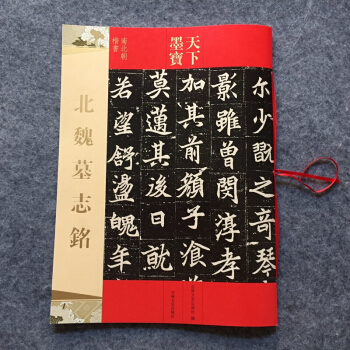 天下
墨寶
南北朝
楷書
北魏墓志銘
尔少翫之奇琴
影雖曾閔淳孝
加其前顏子飡道
莫邁其後日就
若望舒盪魄年